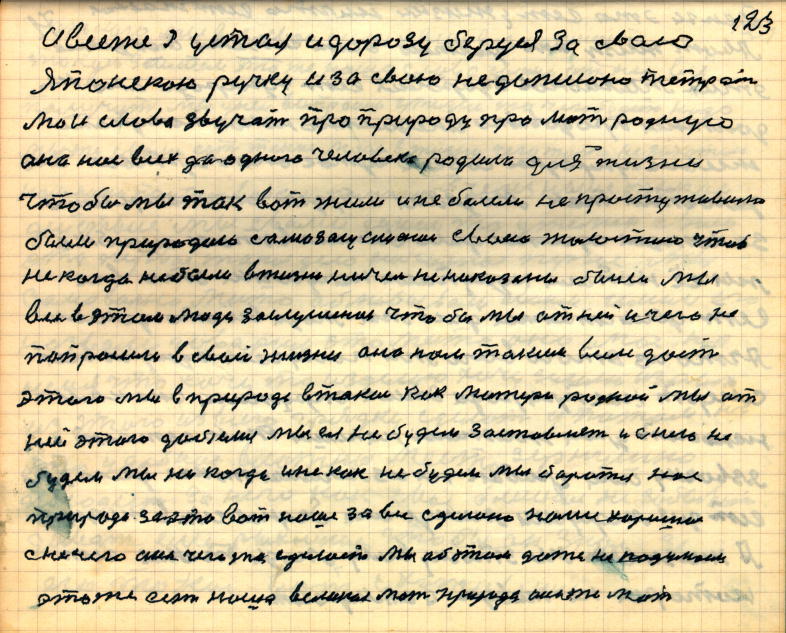 123
И всеже я устал и дорозу беруся за свою
Японскою ручку и за свою недописоно тетрат
мои слова звучат про природу про мат родную
она нас всех до одного человека родила для жизни
чтобы мы так вот жили и не болели не простужавилис
были природою самозаслужоной своею жалостию чтоб
некогда наболи в жизни ничем ненаказаны были мы
все в этом люди заслужоные чтобы мы от ней и чего не
попросили в своей жизни она нам таким всем даст
этого мы в природе в такой как матери родной мы от
ней этого добемся мы ея не будем заставлят и с нею не
будем мы некогда и не как не будем мы боротся нас
природа за это вот наше за все сделоно нами хорошое
с нечего она чего та сделает мы об этом даже не подумаем
это же ест наша великая мат природа она же мат